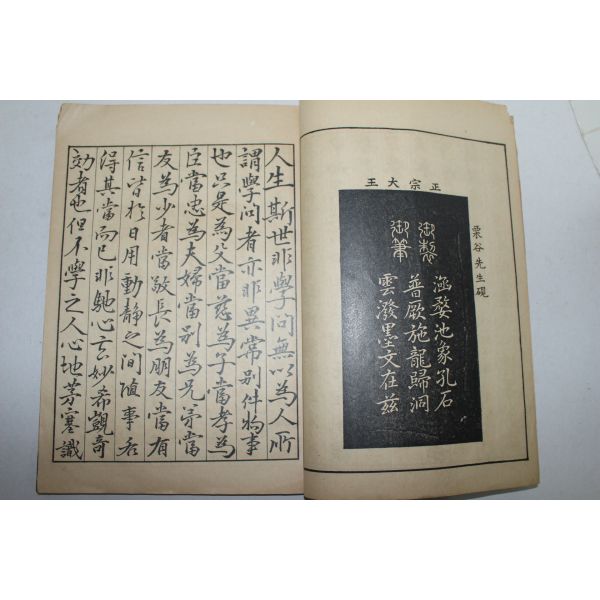 正宗大王
栗谷先生硯
御製
御筆
涵婺池象孔石
普厥施龍歸洞
雲潑墨文在兹
人生斯世非學問無以為人所
謂學問者亦非異常別件物事
也只是為父當慈為子當孝為
臣當忠為夫婦當別為兄弟當
友為少者當敬長為朋友當有
信皆於日用動靜之間隨事各
得其當而已非馳心玄妙希覬奇
効者也但不學之人心地茅塞識